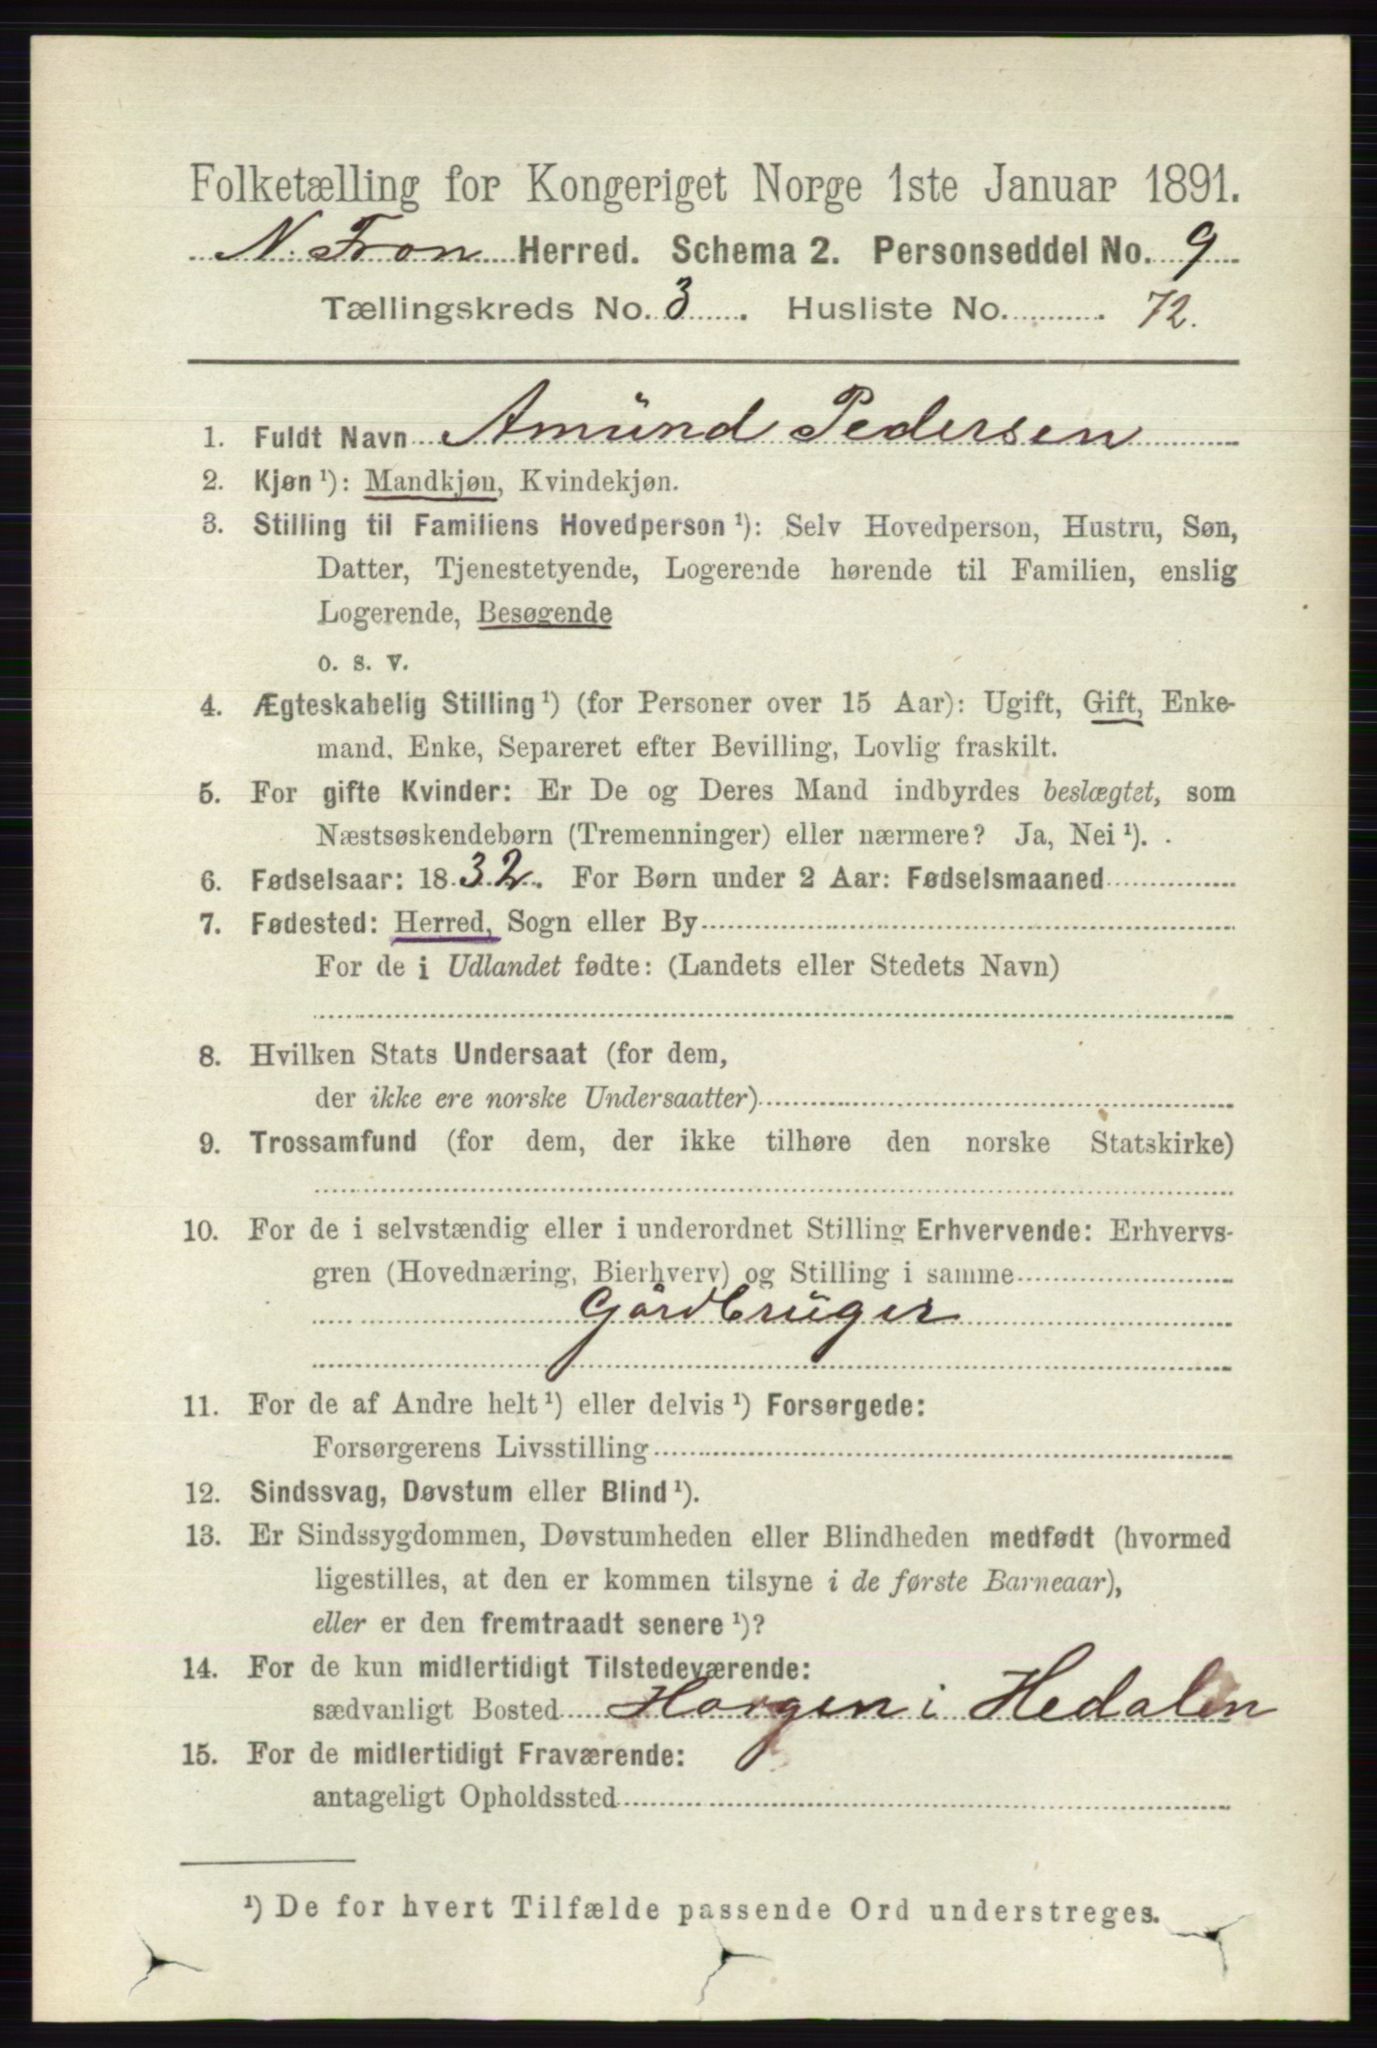 Folketælling for Kongeriget Norge 1ste Januar 1891.
N. Fron Herred. Schema 2. Personseddel No. 9
Tællingskreds No. 3. Husliste No. 72.
1. Fuldt Navn Amünd Pedersen
2. Kjøn ¹): Mandkjøn, Kvindekjøn.
3. Stilling til Familiens Hovedperson ¹): Selv Hovedperson, Hustru, Søn,
Datter, Tjenestetyende, Logerende hørende til Familien, enslig
Logerende, Besøgende
o. s. v.
4. Ægteskabelig Stilling ¹) (for Personer over 15 Aar): Ugift, Gift, Enke-
mand, Enke, Separeret efter Bevilling, Lovlig fraskilt.
5. For gifte Kvinder: Er De og Deres Mand indbyrdes beslægtet, som
Næstsøskendebørn (Tremenninger) eller nærmere? Ja, Nei ¹).
6. Fødselsaar: 1832. For Børn under 2 Aar: Fødselsmaaned
7. Fødested: Herred, Sogn eller By
For de i Udlandet fødte: (Landets eller Stedets Navn)
8. Hvilken Stats Undersaat (for dem,
der ikke ere norske Undersaatter)
9. Trossamfund (for dem, der ikke tilhøre den norske Statskirke)
10. For de i selvstændig eller i underordnet Stilling Erhvervende: Erhvervs-
gren (Hovednæring, Bierhverv) og Stilling i samme
Gårdbrüger
11. For de af Andre helt ¹) eller delvis ¹) Forsørgede:
Forsørgerens Livsstilling
12. Sindssvag, Døvstum eller Blind ¹).
13. Er Sindssygdommen, Døvstumheden eller Blindheden medfødt (hvormed
ligestilles, at den er kommen tilsyne i de første Barneaar),
eller er den fremtraadt senere ¹)?
14. For de kun midlertidigt Tilstedeværende:
sædvanligt Bosted Horgen i Hedalen
15. For de midlertidigt Fraværende:
antageligt Opholdssted
¹) De for hvert Tilfælde passende Ord understreges.